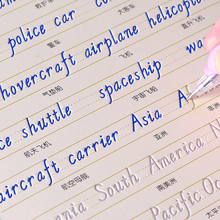 大客车
police car co
警车 飞机 直升飞机
hovercraft airplane helicopte
气垫船 宇宙飞船
ce shuttle spaceship wa
航天飞机 亚洲
aircraft carrier Asia A
航空母舰 南美洲
ania South America
Pacific O